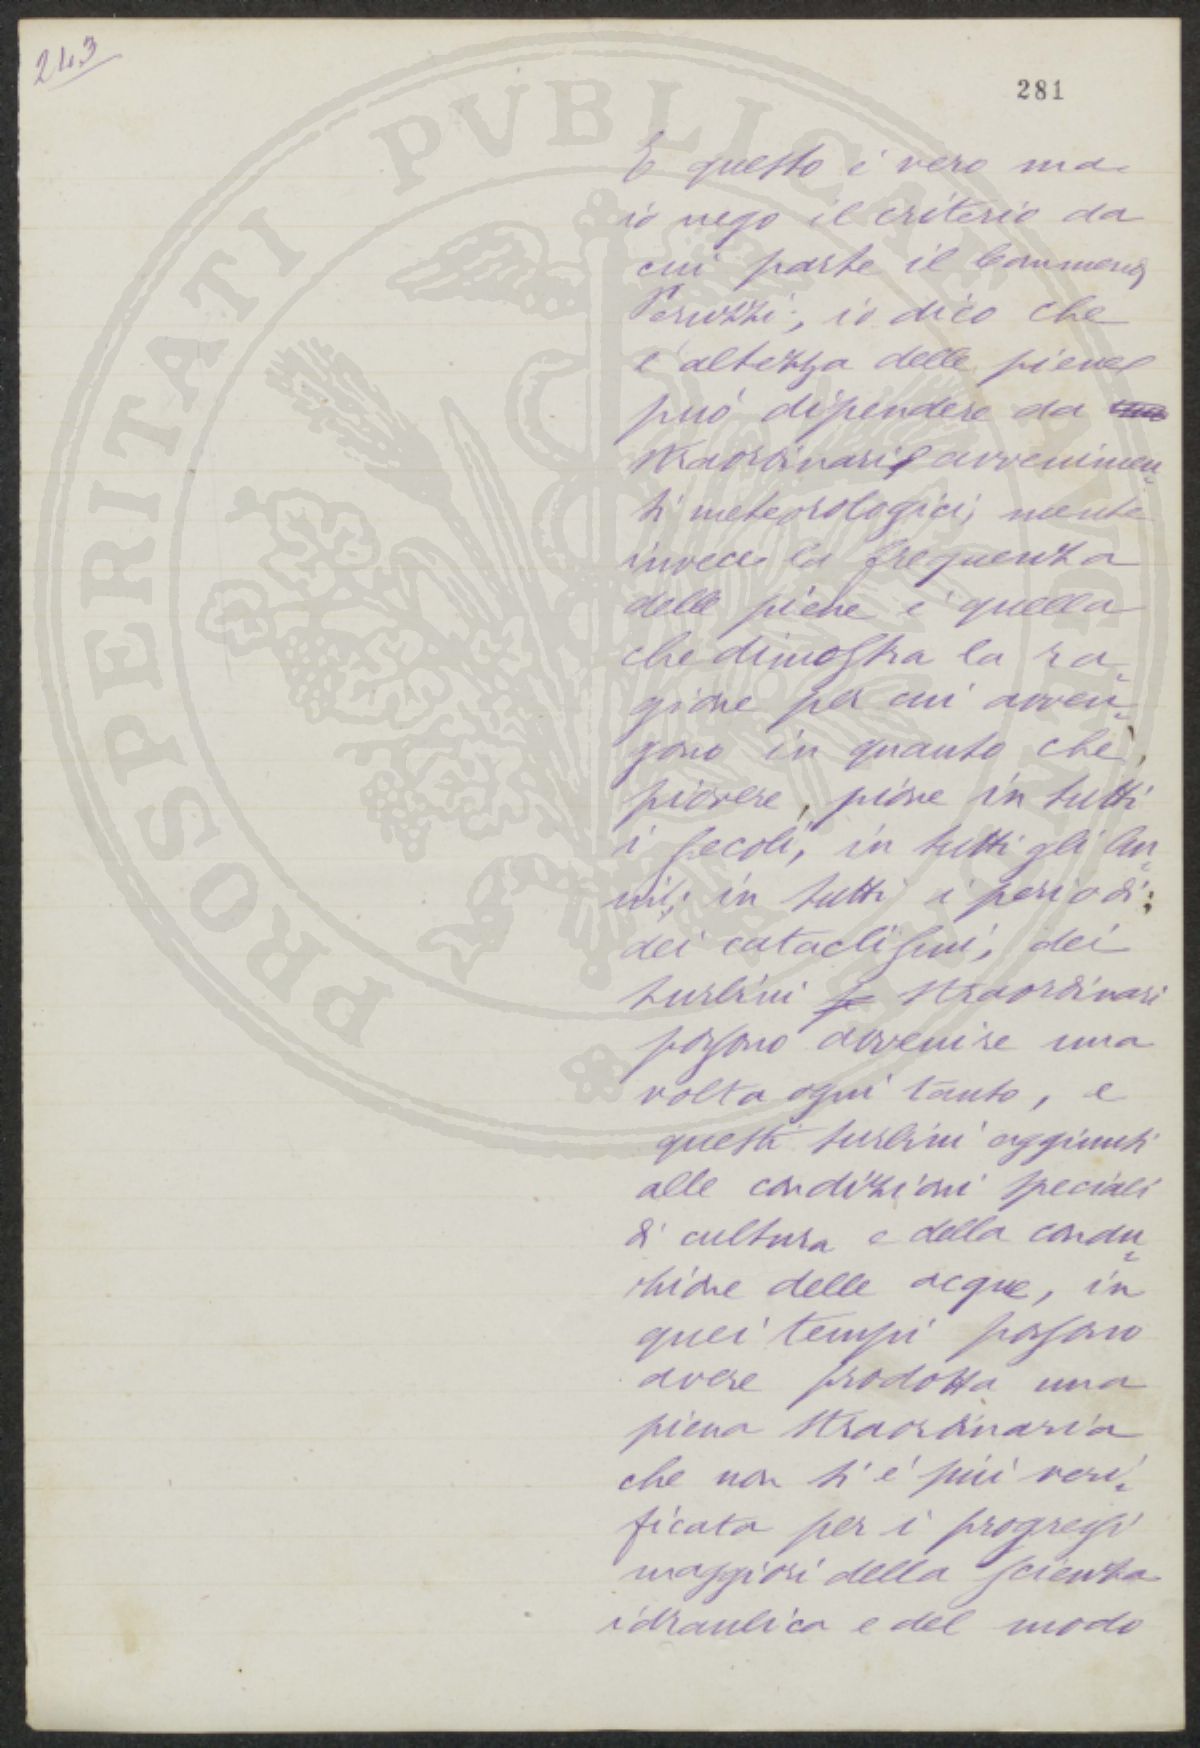 243
281
E questo è vero ma
io nego il criterio da
cui parte il Commend
Peruzzi; io dico che
l'altezza delle piene
può dipendere da
straordinari avvenimen-
ti meteorologici; mentre
invece la frequenza
delle piene è quella
che dimostra la ra-
gione per cui avven-
gono in quanto che,
piovere, piove in tutti
i secoli, in tutti gli an-
ni; in tutti i periodi;
dei cataclismi, dei
turbini straordinari
possono avvenire una
volta ogni tanto, e
questi turbini aggiunti
alle condizioni speciali
di cultura e della condu-
zione delle acque, in
quei tempi possono
avere prodotta una
piena straordinaria
che non si è più veri-
ficata per i progressi
maggiori della scienza
idraulica e del modo
PROSPERITATI PVBLICAE AVGENDAE